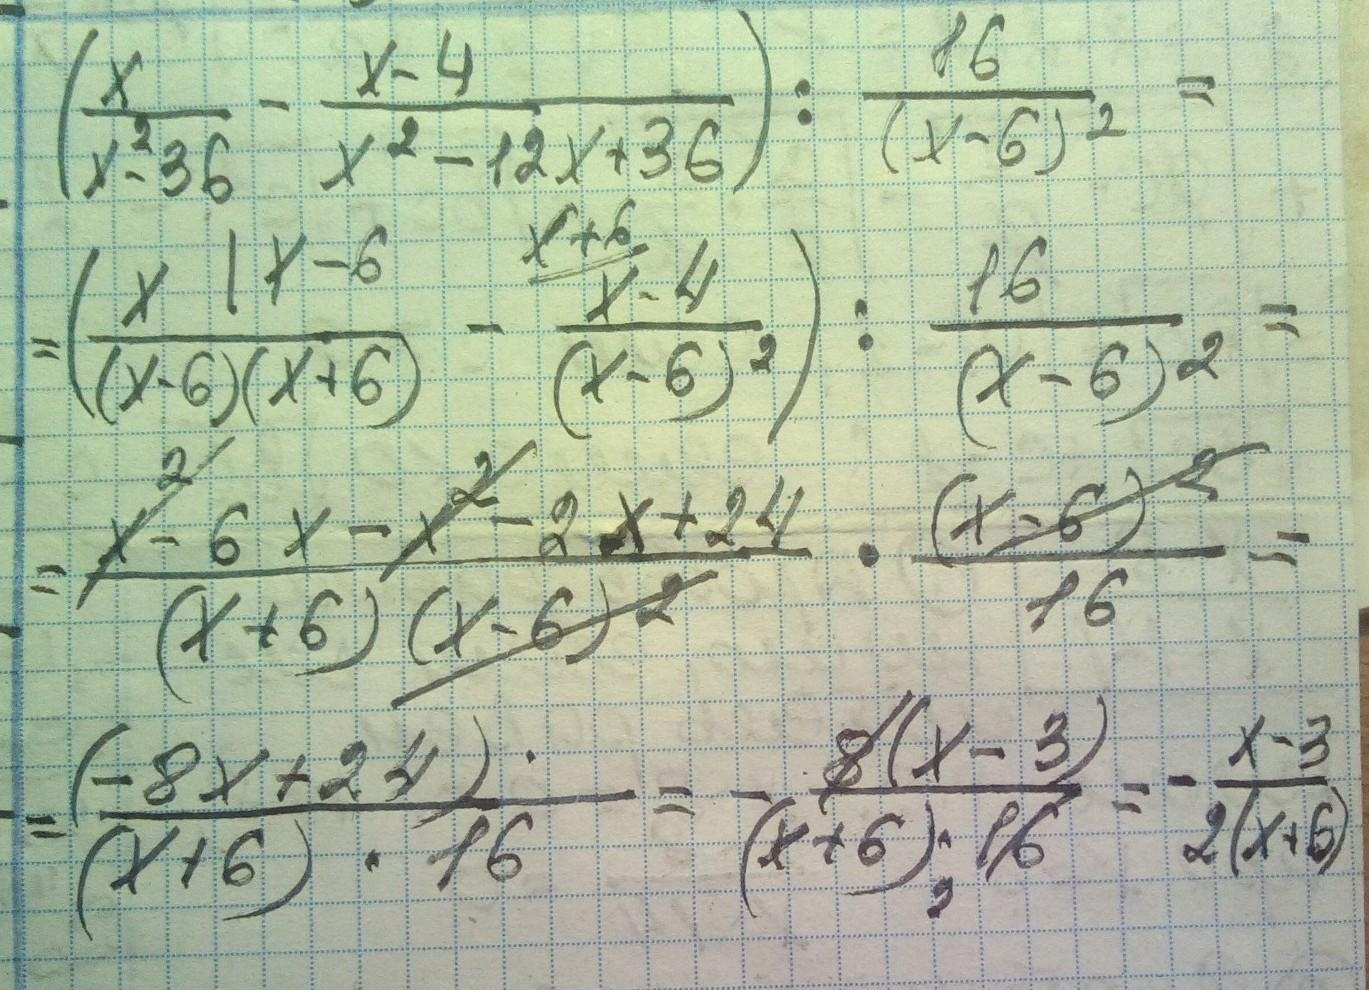 (x/(x²-36) - (x-4)/(x²-12x+36)) : 16/(x-6)² =
= (x |x-6/((x-6)(x+6)) - x-4 x+6/(x-6)²) : 16/(x-6)² =
= (x²-6x-x²-2x+24)/((x+6)(x-6)²) · (x-6)²/16 =
= (-8x+24)·/((x+6)·16) = - 8(x-3)/((x+6)·16 2) = - (x-3)/(2(x+6))